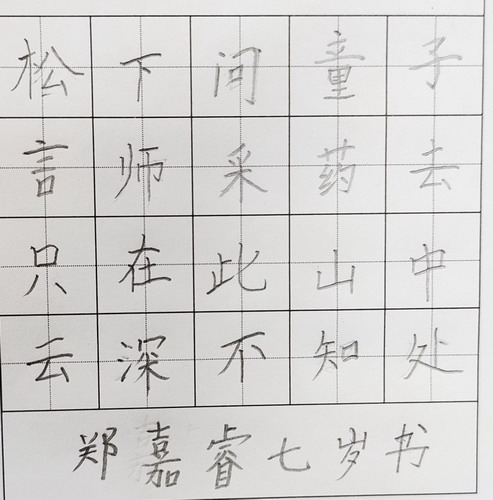 松下问童子
言师采药去
只在此山中
云深不知处
郑嘉睿七岁书